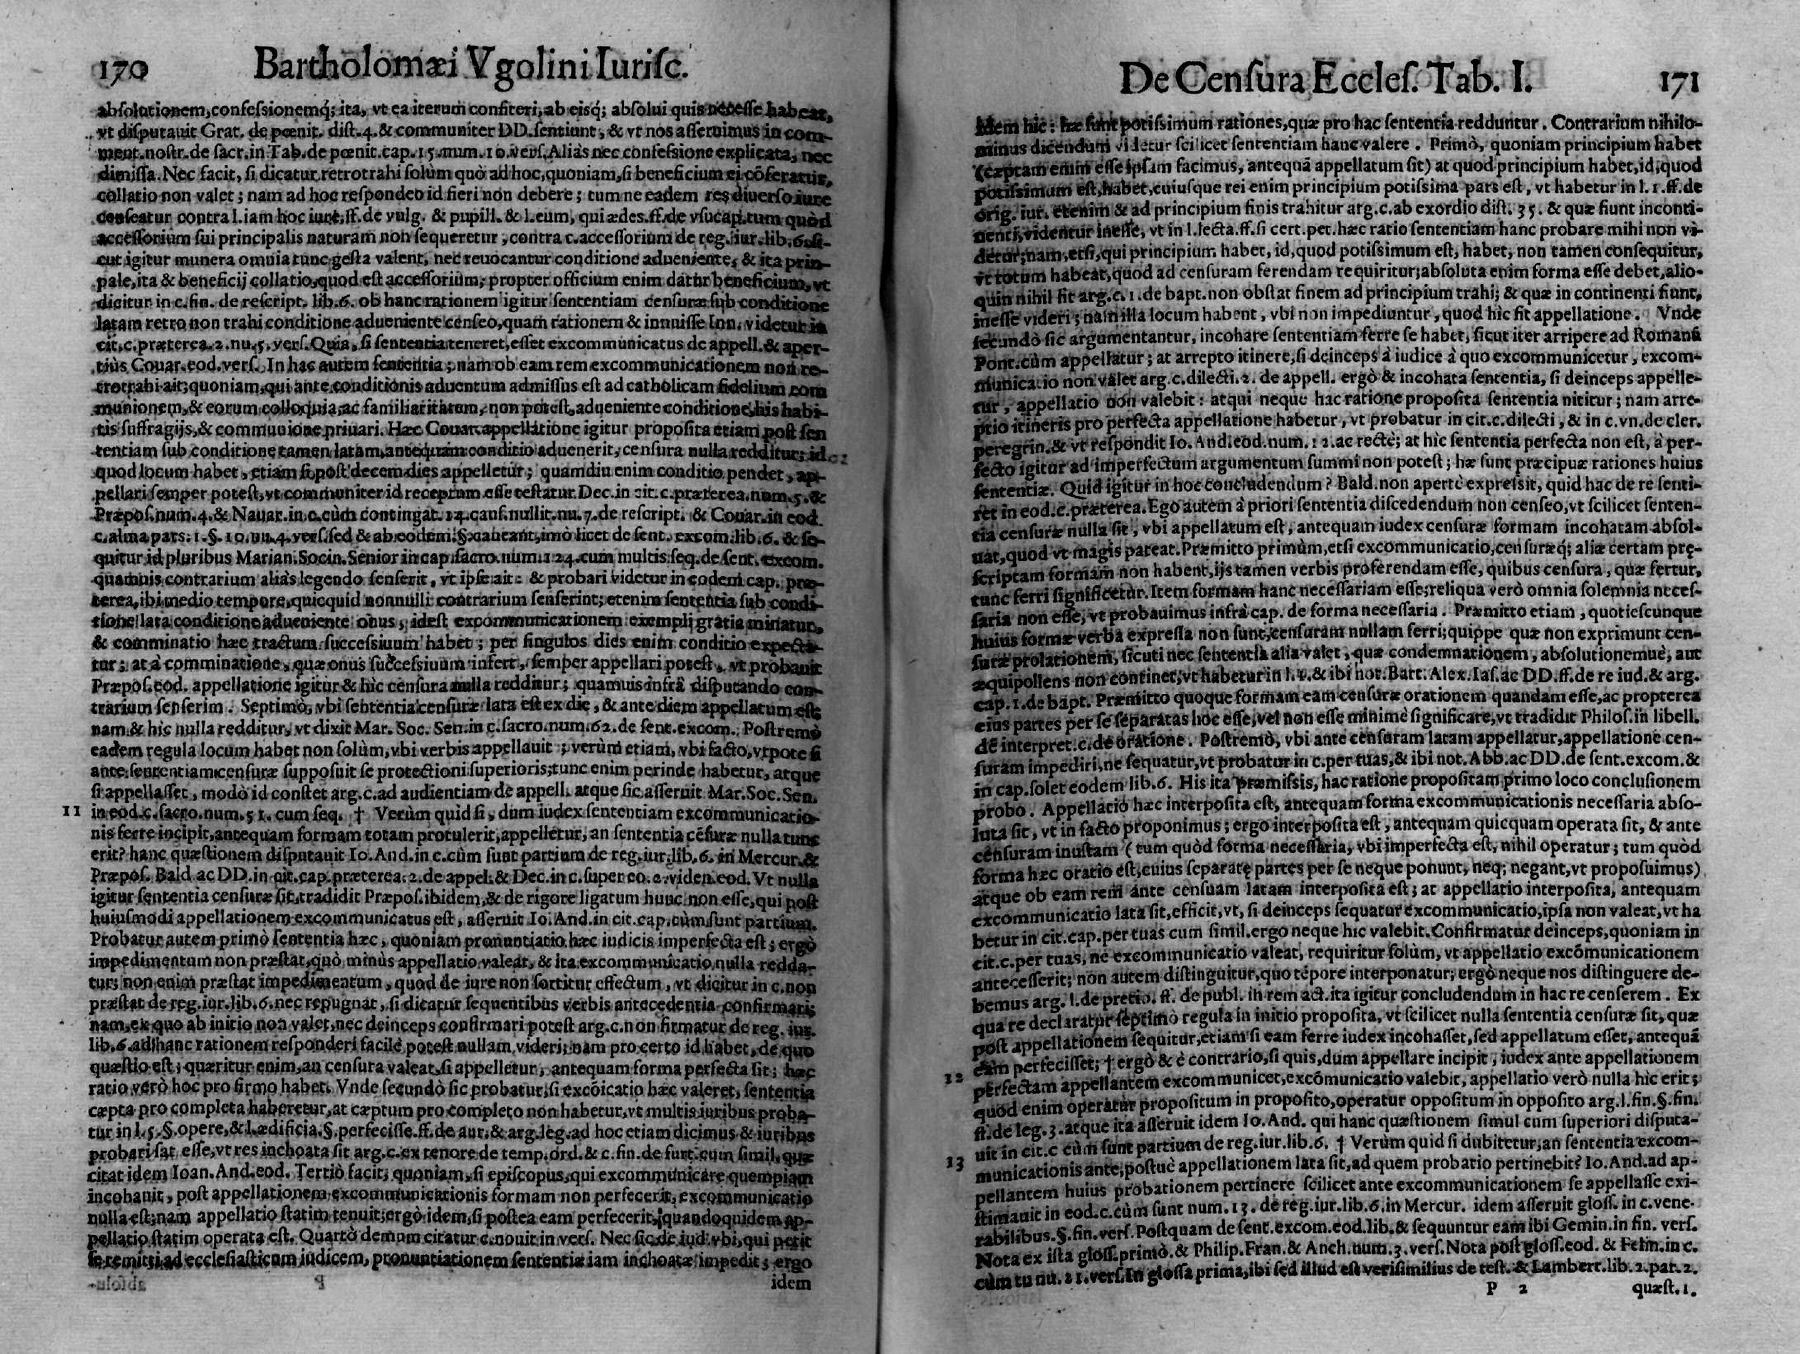 170 Bartholomæi Vgolini Iurisc.
absolutionem, confessionemq́; ita, vt ea iterum confiteri, ab eisq́; absolui quis necesse habeat,
vt disputauit Grat. de pœnit. dist. 4. & communiter DD. sentiunt, & vt nos asseruimus in com-
ment. nostr. de sacr. in Tab. de pœnit. cap. 15. num. 10. vers. Aliàs nec confessione explicata, nec
dimissa. Nec facit, si dicatur retrotrahi solùm quò ad hoc, quoniam, si beneficium ei cōferatur,
collatio non valet; nam ad hoc respondeo id fieri non debere; tum ne eadem res diuerso iure
censeatur contra l. iam hoc iure, ff. de vulg. & pupill. & l. eum, qui ædes. ff. de vsucap. tum quòd
accessorium sui principalis naturam non sequeretur, contra c. accessorium de reg. iur. lib. 6. si-
cut igitur munera omnia tunc gesta valent, nec reuocantur conditione adueniente, & ita prin-
pale, ita & beneficij collatio, quod est accessorium; propter officium enim datur beneficium, vt
dicitur in c. fin. de rescript. lib. 6. ob hanc rationem igitur sententiam censuræ sub conditione
latam retro non trahi conditione adueniente censeo, quam rationem & innuisse Inn. videtur in
cit. c. præterea. 2. nu. 5. vers. Quia, si sententia teneret, esset excommunicatus de appell. & aper-
tiùs Couar. eod. vers. In hac autem sententia; nam ob eam rem excommunicationem non re-
trotrahi ait; quoniam, qui ante conditionis aduentum admissus est ad catholicam fidelium com
munionem, & eorum colloquia, ac familiaritatem, non potest, adueniente conditione, his habi-
tis suffragijs, & communione priuari. Hæc Couar. appellatione igitur proposita etiam post sen
tentiam sub conditione tamen latam, antequam conditio aduenerit, censura nulla redditur; id
quod locum habet, etiam si post decem dies appelletur; quamdiu enim conditio pendet, ap-
pellari semper potest, vt communiter id receptum esse testatur Dec. in cit. c. præterea. num. 5. &
Præpos. num. 4. & Nauar. in c. cùm contingat. 14. caus. nullit. nu. 7. de rescript. & Couar. in eod.
c. alma pars. 1. §. 10. nu. 4. vers. sed & ab eodem §. caueant, imò licet de sent. excom. lib. 6. & se-
quitur id pluribus Marian. Socin. Senior in cap. sacro. num. 124. cum multis seq. de sent. excom.
quamuis contrarium aliàs legendo senserit, vt ipse ait: & probari videtur in eodem cap. præ-
terea, ibi medio tempore, quicquid nonnulli contrarium senserint; etenim sententia sub condi-
tione lata conditione adueniente onus, idest expommunicationem exemplj gratia minatur,
& comminatio hæc tractum successiuum habet; per singulos dies enim conditio expecta-
tur; at à comminatione, quæ onus successiuum infert, semper appellari potest, vt probauit
Præpos. eod. appellatione igitur & hic censura nulla redditur; quamuis infrà disputando con-
trarium senserim. Septimò, vbi sententia censuræ lata est ex die, & ante diem appellatum est;
nam & hic nulla redditur, vt dixit Mar. Soc. Sen. in c. sacro. num. 62. de sent. excom. Postremò
eadem regula locum habet non solùm, vbi verbis appellauit; verùm etiam, vbi facto, vtpote si
ante sententiam censuræ supposuit se protectioni superioris; tunc enim perinde habetur, atque
si appellasset, modò id constet arg. c. ad audientiam de appell. atque sic asseruit Mar. Soc. Sen.
11 in eod. c. sacro. num. 51. cum seq. † Verùm quid si, dum iudex sententiam excommunicatio-
nis ferre incipit, antequam formam totam protulerit, appelletur, an sententia cēsuræ nulla tunc
erit? hanc quæstionem disputauit Io. And. in c. cùm sunt partium de reg. iur. lib. 6. in Mercur. &
Præpos. Bald. ac DD. in cit. cap. præterea. 2. de appel. & Dec. in c. super eo. 2. viden. eod. Vt nulla
igitur sententia censuræ sit, tradidit Præpos. ibidem, & de rigore ligatum hunc non esse, qui post
huiusmodi appellationem excommunicatus est, asseruit Io. And. in cit. cap. cùm sunt partium.
Probatur autem primò sententia hæc, quoniam pronuntiatio hæc iudicis imperfecta est; ergò
impedimentum non præstat, quò minùs appellatio valeat, & ita excommunicatio nulla redda-
tur; non enim præstat impedimentum, quod de iure non sortitur effectum, vt dicitur in c. non
præstat de reg. iur. lib. 6. nec repugnat, si dicatur sequentibus verbis antecedentia confirmari;
nam, ex quo ab initio non valet, nec deinceps confirmari potest arg. c. non firmatur de reg. iur.
lib. 6. ad hanc rationem responderi facilè potest nullam videri; nam pro certo id habet, de quo
quæstio est; quæritur enim, an censura valeat, si appelletur, antequam forma perfecta sit; hæc
ratio verò hoc pro firmo habet. Vnde secundò sic probatur; si excōicatio hæc valeret, sententia
cæpta pro completa haberetur, at cæptum pro completo non habetur, vt multis iuribus proba-
tur in l. 5. §. opere, & l. ædificia. §. perfecisse. ff. de aur. & arg. leg. ad hoc etiam dicimus & iuribus
probari sat esse, vt res inchoata sit arg. c. ex tenore de temp. ord. & c. fin. de furt. cum simil. quæ
citat idem Ioan. And. eod. Tertiò facit; quoniam, si episcopus, qui excommunicare quempiam
incohauit, post appellationem excommunicationis formam non perfecerit, excommunicatio
nulla est; nam appellatio statim tenuit; ergò idem, si postea eam perfecerit, quandoquidem ap-
pellatio statim operata est. Quartò demum citatur c. nouit in vers. Nec sic de iud. vbi, qui petit
se remitti ad ecclesiasticum iudicem, pronuntiationem sententiæ iam inchoatæ impedit; ergo
P idem
De Censura Eccles. Tab. I. 171
Idem hic: hæ sunt potissimum rationes, quæ pro hac sententia redduntur. Contrarium nihilo-
minus dicendum videtur scilicet sententiam hanc valere. Primò, quoniam principium habet
(cæptam enim esse ipsam facimus, antequā appellatum sit) at quod principium habet, id, quod
potissimum est, habet, cuiusque rei enim principium potissima pars est, vt habetur in l. 1. ff. de
orig. iur. etenim & ad principium finis trahitur arg. c. ab exordio dist. 35. & quæ fiunt inconti-
nenti, videntur inesse, vt in l. lecta. ff. si cert. pet. hæc ratio sententiam hanc probare mihi non vi-
detur; nam, etsi, qui principium habet, id, quod potissimum est, habet, non tamen consequitur,
vt totum habeat, quod ad censuram ferendam requiritur; absoluta enim forma esse debet, alio-
quin nihil fit arg. c. 1. de bapt. non obstat finem ad principium trahi; & quæ in continenti fiunt,
inesse videri; nam illa locum habent, vbi non impediuntur, quod hìc fit appellatione. Vnde
secundò sic argumentantur, incohare sententiam ferre se habet, sicut iter arripere ad Romanū
Pont. cùm appellatur; at arrepto itinere, si deinceps à iudice à quo excommunicetur, excom-
municatio non valet arg. c. dilecti. 2. de appell. ergò & incohata sententia, si deinceps appelle-
tur, appellatio non valebit: atqui neque hac ratione proposita sententia nititur; nam arre-
ptio itineris pro perfecta appellatione habetur, vt probatur in cit. c. dilecti, & in c. vn. de cler.
peregrin. & vt respondit Io. And. eod. num. 12. ac rectè; at hic sententia perfecta non est, à per-
fecto igitur ad imperfectum argumentum summi non potest; hæ sunt præcipuæ rationes huius
sententiæ. Quid igitur in hoc concludendum? Bald. non apertè expressit, quid hac de re senti-
ret in eod. c. præterea. Ego autem à priori sententia discedendum non censeo, vt scilicet senten-
tia censuræ nulla sit, vbi appellatum est, antequam iudex censuræ formam incohatam absol-
uat, quod vt magis pateat. Præmitto primùm, etsi excommunicatio, censuræq́; aliæ certam prę-
scriptam formam non habent, ijs tamen verbis proferendam esse, quibus censura, quæ fertur,
tunc ferri significetur. Item formam hanc necessariam esse; reliqua verò omnia solemnia neces-
saria non esse, vt probauimus infrà cap. de forma necessaria. Præmitto etiam, quotiescunque
huius formæ verba expressa non sunt, censuram nullam ferri; quippe quæ non exprimunt cen-
suræ prolationem, sicuti nec sententia alia valet, quæ condemnationem, absolutionemuè, aut
æquipollens non continet, vt habetur in l. 1. & ibi not. Bart. Alex. Ias. ac DD. ff. de re iud. & arg.
cap. 1. de bapt. Præmitto quoque formam eam censuræ orationem quandam esse, ac propterea
eius partes per se separatas hoc esse, vel non esse minimè significare, vt tradidit Philos. in libell.
de interpret. c. de oratione. Postremò, vbi ante censuram latam appellatur, appellatione cen-
suram impediri, ne sequatur, vt probatur in c. per tuas, & ibi not. Abb. ac DD. de sent. excom. &
in cap. solet eodem lib. 6. His ita præmissis, hac ratione propositam primo loco conclusionem
probo. Appellatio hæc interposita est, antequam forma excommunicationis necessaria abso-
luta sit, vt in facto proponimus; ergo interposita est, antequam quicquam operata sit, & ante
censuram inustam (tum quòd forma necessaria, vbi imperfecta est, nihil operatur; tum quòd
forma hæc oratio est, cuius separatę partes per se neque ponunt, neq; negant, vt proposuimus)
atque ob eam rem ante censuam latam interposita est; at appellatio interposita, antequam
excommunicatio lata sit, efficit, vt, si deinceps sequatur excommunicatio, ipsa non valeat, vt ha
betur in cit. cap. per tuas cum simil. ergo neque hic valebit. Confirmatur deinceps, quoniam in
cit. c. per tuas, ne excommunicatio valeat, requiritur solùm, vt appellatio excōmunicationem
antecesserit; non autem distinguitur, quo tēpore interponatur; ergò neque nos distinguere de-
bemus arg. l. de pretio. ff. de publ. in rem act. ita igitur concludendum in hac re censerem. Ex
qua re declaratur septimò regula in initio proposita, vt scilicet nulla sententia censuræ sit, quæ
post appellationem sequitur, etiam si eam ferre iudex incohasset, sed appellatum esset, antequā
eam perfecisset; † ergò & è contrario, si quis, dum appellare incipit, iudex ante appellationem
12 perfectam appellantem excommunicet, excōmunicatio valebit, appellatio verò nulla hic erit;
quod enim operatur propositum in proposito, operatur oppositum in opposito arg. l. fin. §. fin.
ff. de leg. 3. atque ita asseruit idem Io. And. qui hanc quæstionem simul cum superiori disputa-
uit in cit. c cùm sunt partium de reg. iur. lib. 6. † Verùm quid si dubitetur, an sententia excom-
13 municationis ante, postuè appellationem lata sit, ad quem probatio pertinebit? Io. And. ad ap-
pellantem huius probationem pertinere scilicet ante excommunicationem se appellasse exi-
stimauit in eod. c. cùm sunt num. 13. de reg. iur. lib. 6. in Mercur. idem asseruit gloss. in c. vene-
rabilibus. §. fin. vers. Postquam de sent. excom. eod. lib. & sequuntur eam ibi Gemin. in fin. vers.
Nota ex ista gloss. primò. & Philip. Fran. & Anch. num. 3. vers. Nota post gloss. eod. & Felin. in c.
cùm tu nu. 21. vers. In glossa prima, ibi sed illud est verisimilius de test. & Lambert. lib. 2. pat. 2.
P 2 quæst. 1.